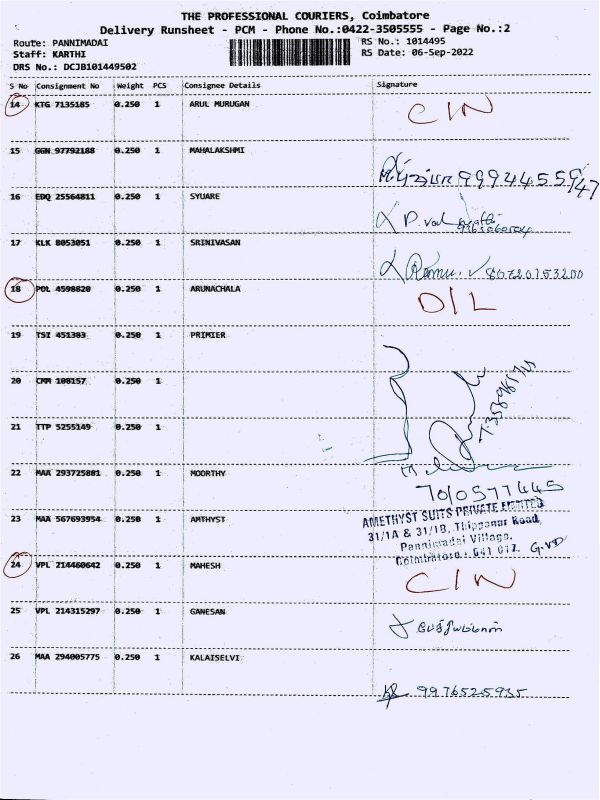 THE PROFESSIONAL COURIERS, Coimbatore
Delivery Runsheet - PCM - Phone No.:0422-3505555 - Page No.:2
Route: PANNIMADAI
RS No.: 1014495
Staff: KARTHI
RS Date: 06-Sep-2022
DRS No.: DCJB101449502
S No Consignment No Weight PCS Consignee Details Signature
14 KTG 7135185 0.250 1 ARUL MURUGAN C/N
15 GGN 97792188 0.250 1 MAHALAKSHMI
9994455947
16 EDQ 25564811 0.250 1 SYUARE
P.
17 KLK 8053051 0.250 1 SRINIVASAN
18 POL 4598820 0.250 1 ARUNACHALA D/L
19 TSI 451303 0.250 1 PRIMIER
20 CMM 108157 0.250 1
21 TTP 5255149 0.250 1
22 MAA 293725881 0.250 1 MOORTHY
7010577445
23 MAA 567693954 0.250 1 AMTHYST
AMETHYST SUITS PRIVATE LIMITED
31/1A & 31/1B, Thippanur Road,
Pannimadai Village,
Coimbatore - 641 017.
24 VPL 214460642 0.250 1 MAHESH C/N
25 VPL 214315297 0.250 1 GANESAN
26 MAA 294005775 0.250 1 KALAISELVI
9976525935